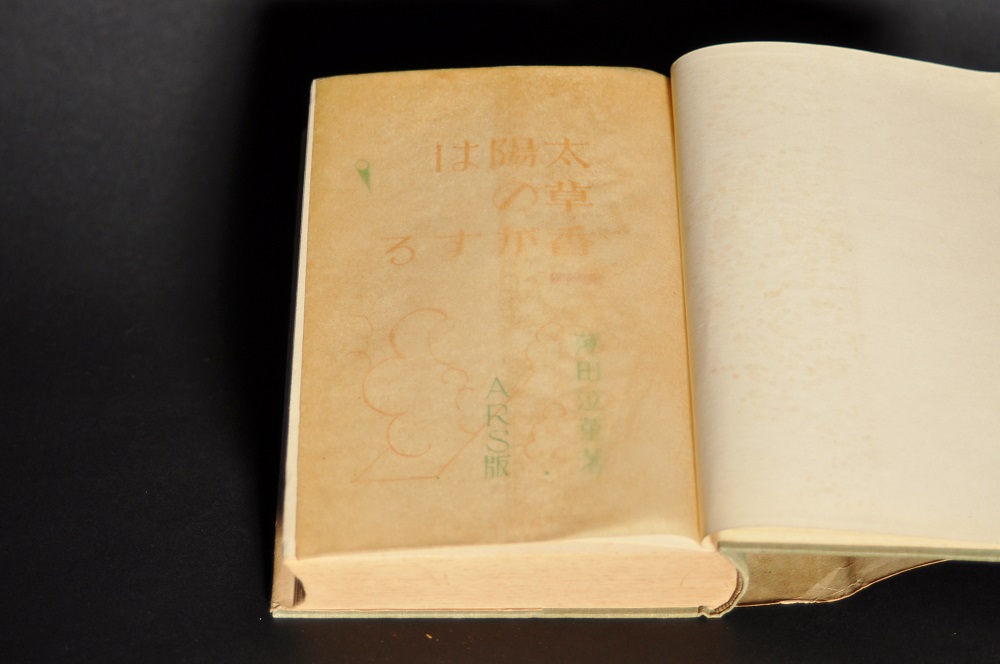 太陽は
草の
香がする
薄田泣菫著
ARS版